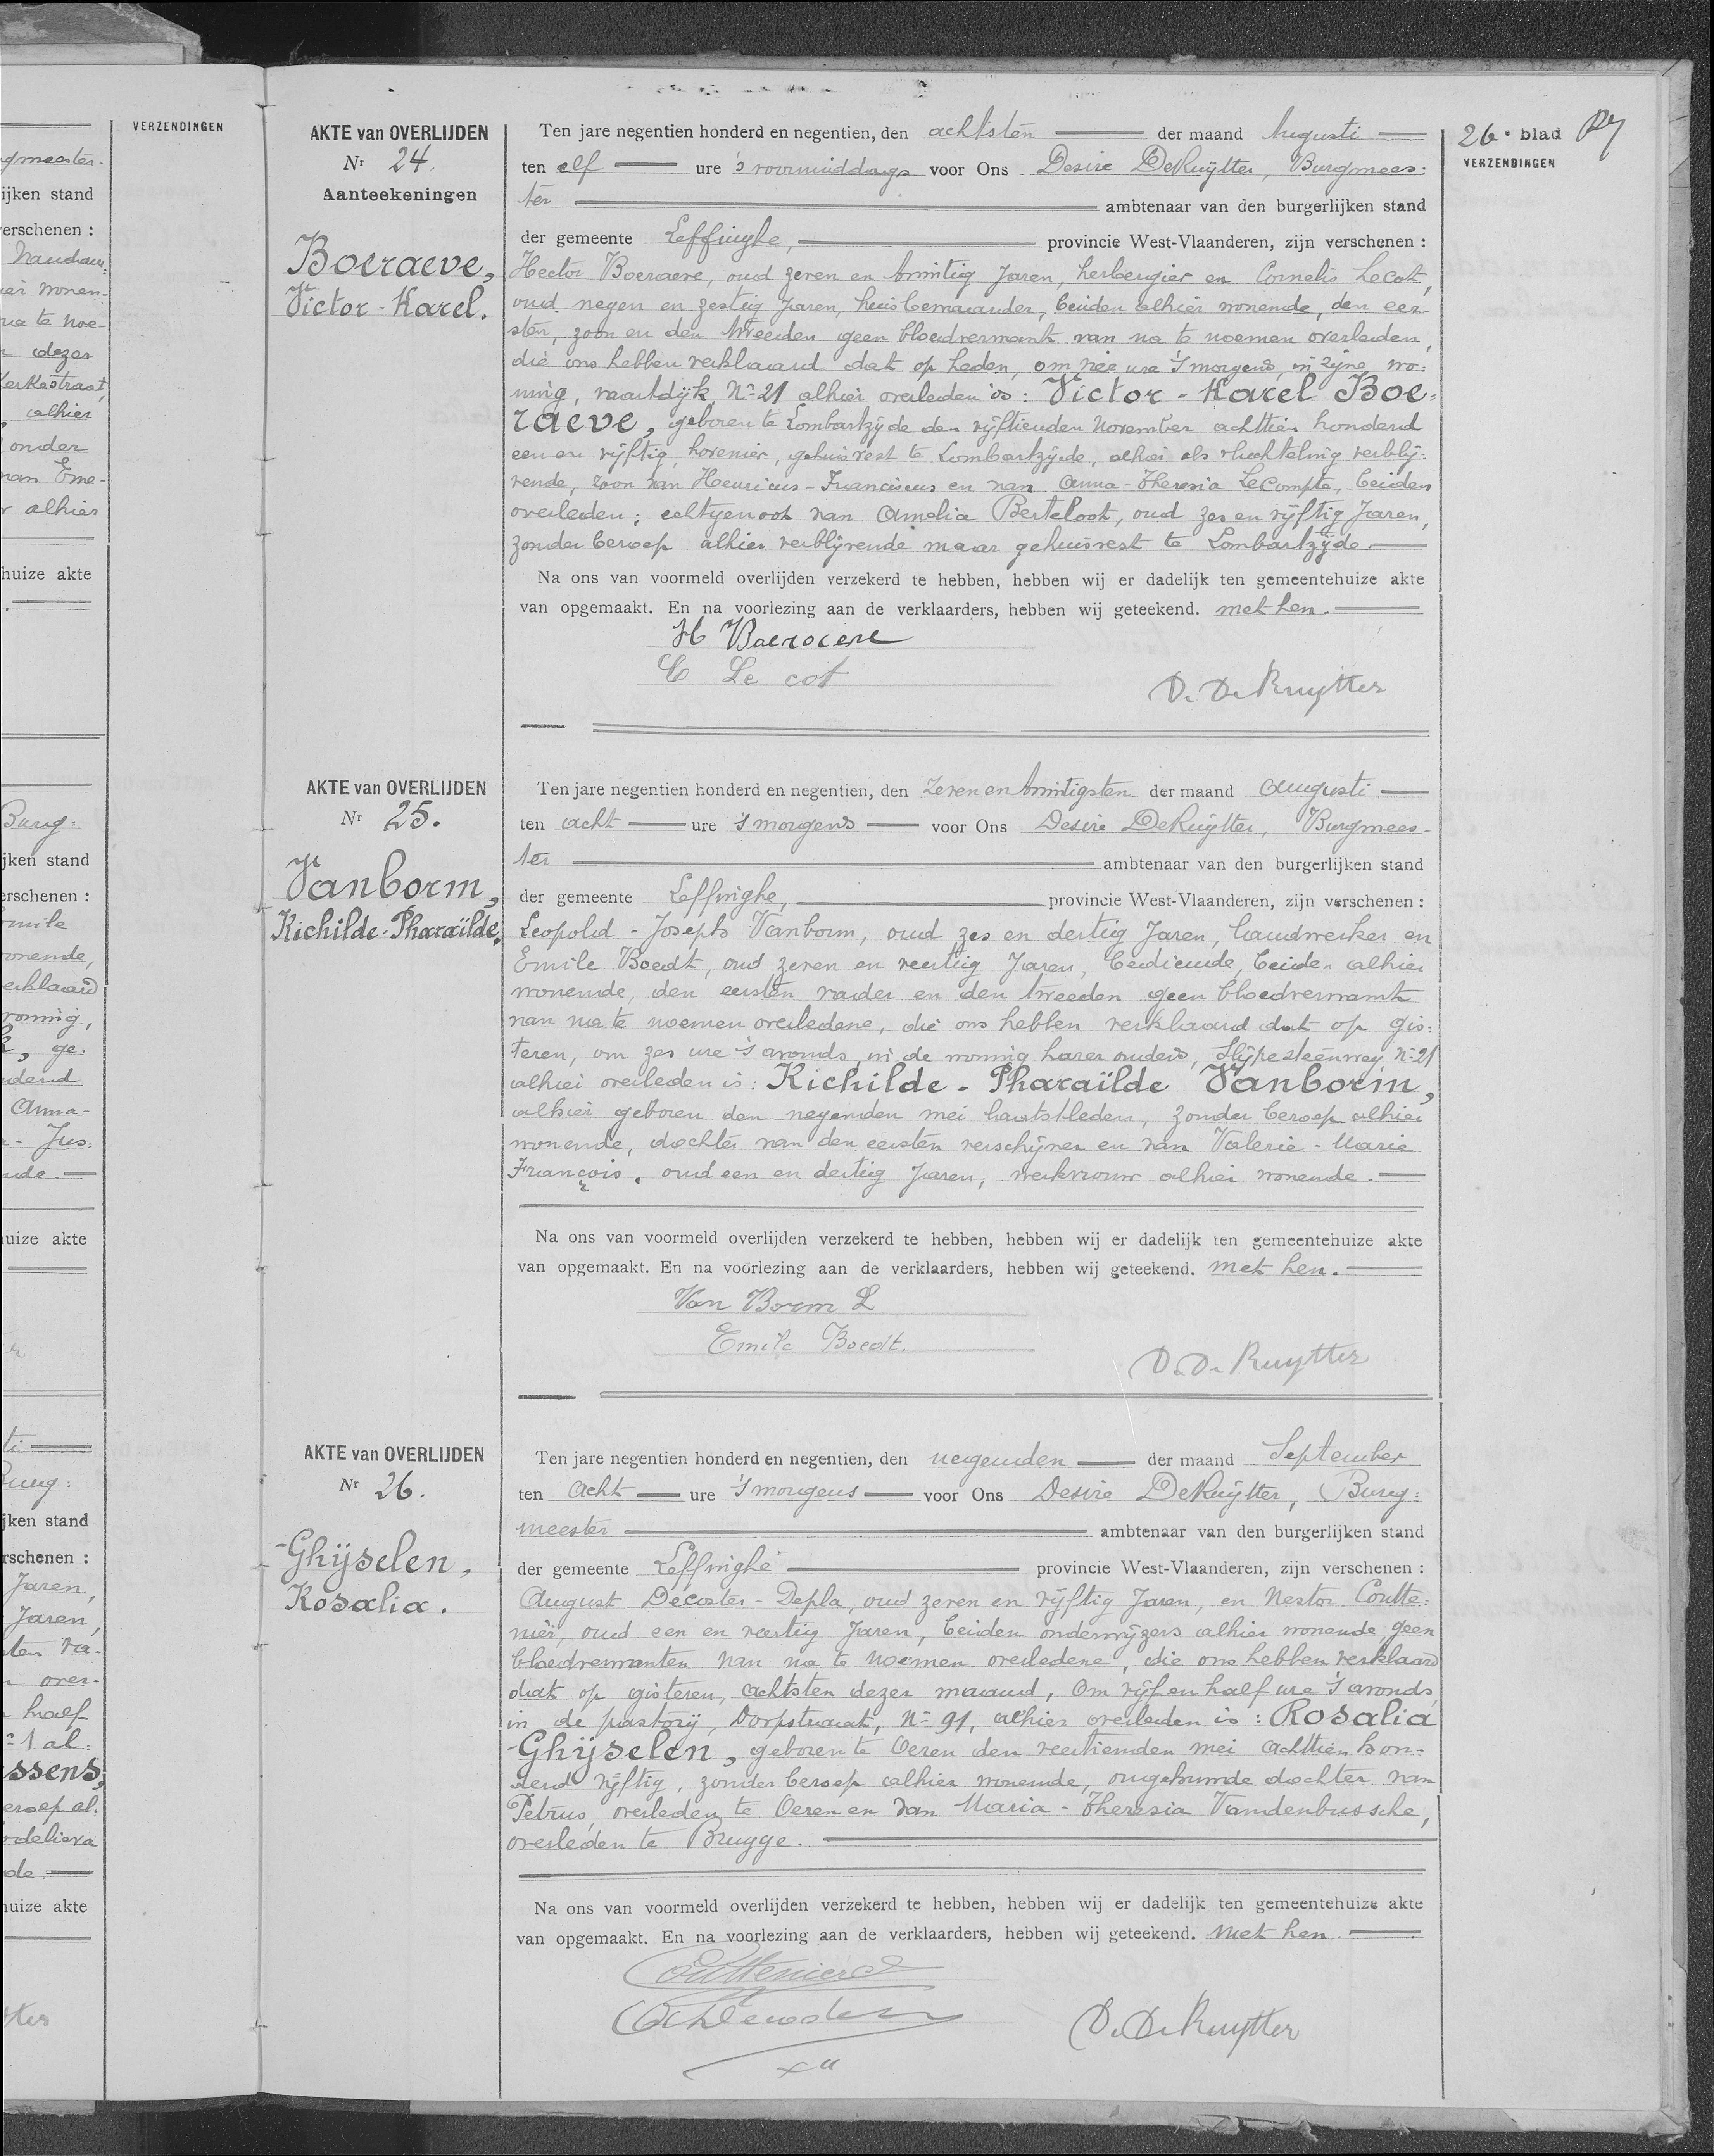 gmeester.
ijken stand
verschenen :
wonen-
na te noe-
dezer
Kerkestraat,
alhier
onder
van Eme-
alhier
huize akte
Burg:
ijken stand
erschenen :
Emile
wonende,
verklaard
woning,
ge:
Anna-
Jus:
huize akte
ijken stand
rschenen :
Jaren,
Jaren,
over-
half
1 al:
ssens,
beroep al.
Godelieva
huize akte
VERZENDINGEN
26e blad
VERZENDINGEN
AKTE van OVERLIJDEN
Nr 24.
Aanteekeningen
Boeraeve,
Victor-Karel.
Ten jare negentien honderd en negentien, den achtsten der maand Augusti
ten elf ure 's voormiddags voor Ons Desire DeRuÿtter, Burgmees:
ter ambtenaar van den burgerlijken stand
der gemeente Leffinghe, provincie West-Vlaanderen, zijn verschenen :
Hector Boeraeve, oud zeven en twintig Jaren, herbergier en Cornelis Lecot,
oud negen en zestig Jaren, huisbewaarder, beiden alhier wonende, den eer-
sten, zoon en den tweeden geen bloedverwant van na te noemen overleden,
die ons hebben verklaard dat op heden, om vier ure 's morgens, in zijne wo:
ning, vaartdÿk, No 21 alhier overleden is : Victor-Karel Boe-
raeve, geboren te Lombartzÿde den vÿftienden November achttien honderd
een en vÿftig, hovenier, gehuisvest te Lombartzÿde, alhier als vluchteling verblÿ:
vende, zoon van Henricus-Franciscus en van Anna-Theresia LeCompte, beiden
overleden; echtgenoot van Amelia Berteloot, oud zes en vÿftig Jaren,
zonder beroep alhier verblÿvende maar gehuisvest te Lombartzÿde.
Na ons van voormeld overlijden verzekerd te hebben, hebben wij er dadelijk ten gemeentehuize akte
van opgemaakt. En na voorlezing aan de verklaarders, hebben wij geteekend. met hen.
H Boeraeve
C Le cot
D. De Ruytter
AKTE van OVERLIJDEN
Nr 25.
Vanborm,
Richilde-Pharaïlde.
Ten jare negentien honderd en negentien, den zeven en twintigsten der maand Augusti
ten acht ure 's morgens voor Ons Desire DeRuÿtter, Burgmees-
ter ambtenaar van den burgerlijken stand
der gemeente Leffinghe, provincie West-Vlaanderen, zijn verschenen :
Leopold-Joseph Vanborm, oud zes en dertig Jaren, landwerker en
Emile Boedt, oud zeven en veertig Jaren, bediende, beiden alhier
wonende, den eersten vader en den tweeden geen bloedverwant
van na te noemen overledene, die ons hebben verklaard dat op gis:
teren, om zes ure 's avonds, in de woning harer ouders, Slÿpesteenweg No 21
alhier overleden is : Richilde-Pharaïlde Vanborm,
alhier geboren den negenden mei laatstleden, zonder beroep alhier
wonende, dochter van den eersten verschÿner en van Valerie-Marie
François, oud een en dertig Jaren, werkvrouw alhier wonende.
Na ons van voormeld overlijden verzekerd te hebben, hebben wij er dadelijk ten gemeentehuize akte
van opgemaakt. En na voorlezing aan de verklaarders, hebben wij geteekend. met hen.
Van Borm L
Emile Boedt.
D. De Ruytter
AKTE van OVERLIJDEN
Nr 26.
Ghÿselen,
Rosalia.
Ten jare negentien honderd en negentien, den negenden der maand September
ten acht ure 's morgens voor Ons Desire DeRuÿtter, Burg:
meester ambtenaar van den burgerlijken stand
der gemeente Leffinghe provincie West-Vlaanderen, zijn verschenen :
August Decoster-Depla, oud zeven en vÿftig Jaren, en Nestor Coutte:
nier, oud een en veertig Jaren, beiden onderwÿzers alhier wonende geen
bloedverwanten van na te noemen overledene, die ons hebben verklaard
dat op gisteren, achtsten dezer maand, om vÿf en half ure 's avonds,
in de pastorÿ, Dorpstraat, No 91, alhier overleden is : Rosalia
Ghÿselen, geboren te Oeren den veertienden mei achttien hon-
derd vÿftig, zonder beroep alhier wonende, ongehuwde dochter van
Petrus, overleden te Oeren en van Maria-Theresia Vandenbussche,
overleden te Brugge.
Na ons van voormeld overlijden verzekerd te hebben, hebben wij er dadelijk ten gemeentehuize akte
van opgemaakt. En na voorlezing aan de verklaarders, hebben wij geteekend. met hen.
Couttenier
D. De Ruytter